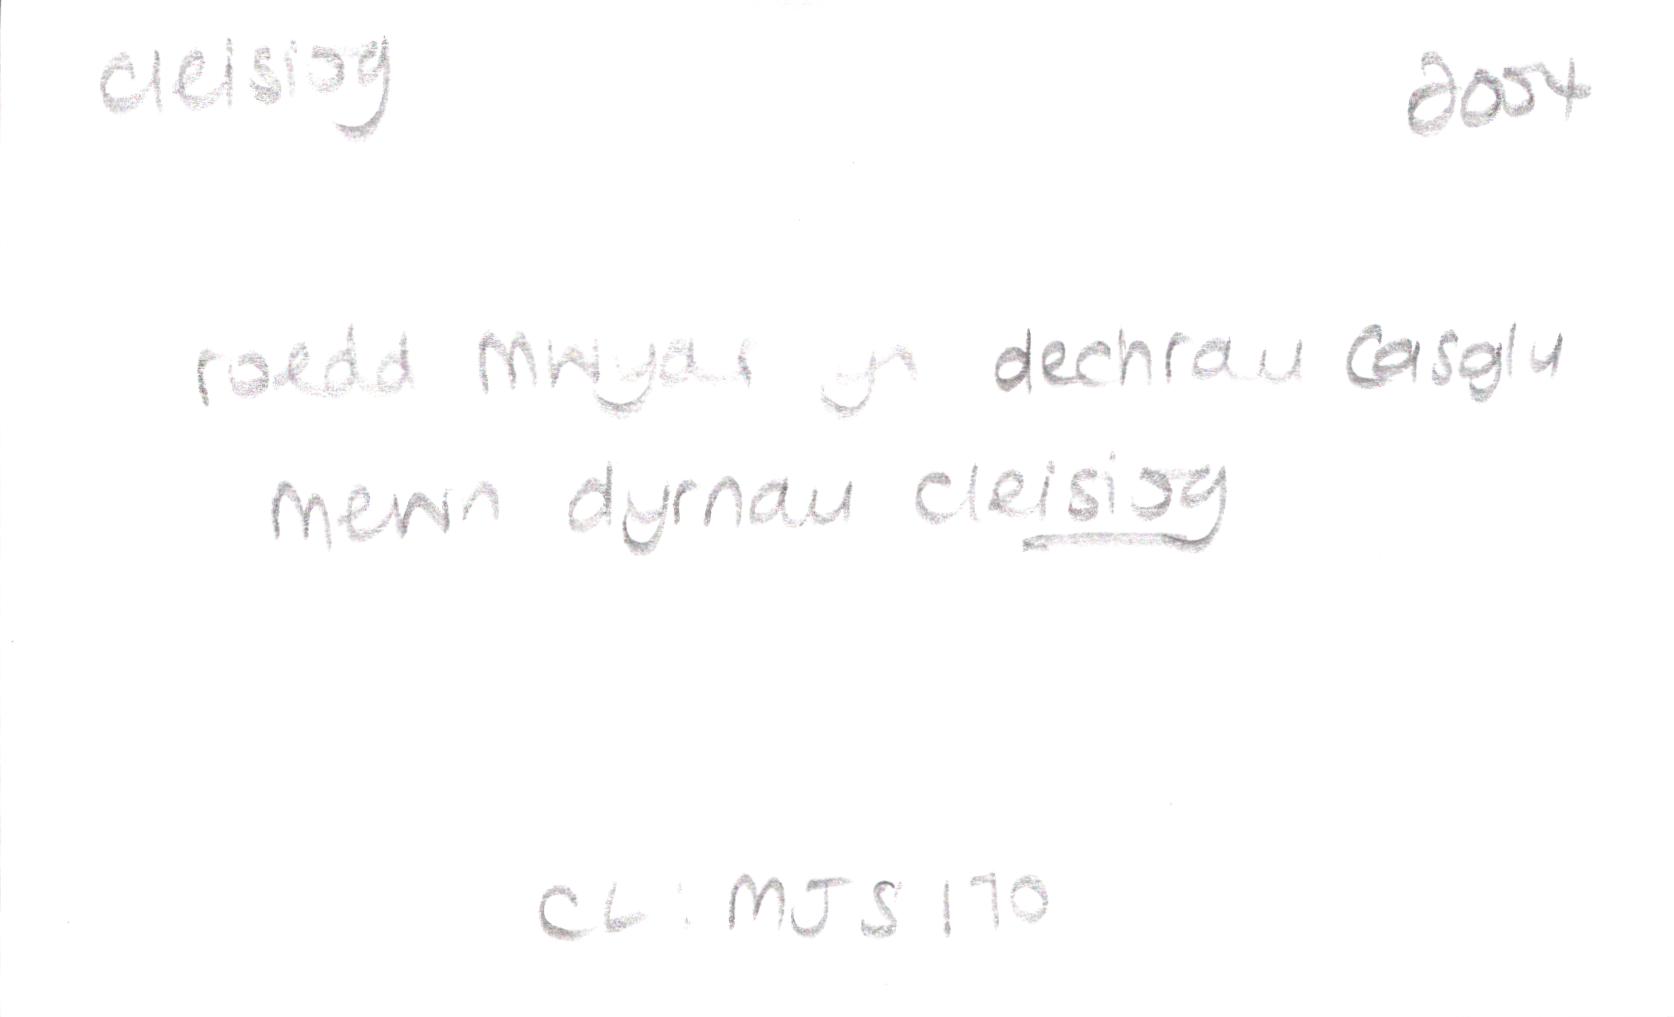 cleisiog 2004
roedd mwyar yn dechrau casglu
mewn dyrnau cleisiog
CL: MJS 170